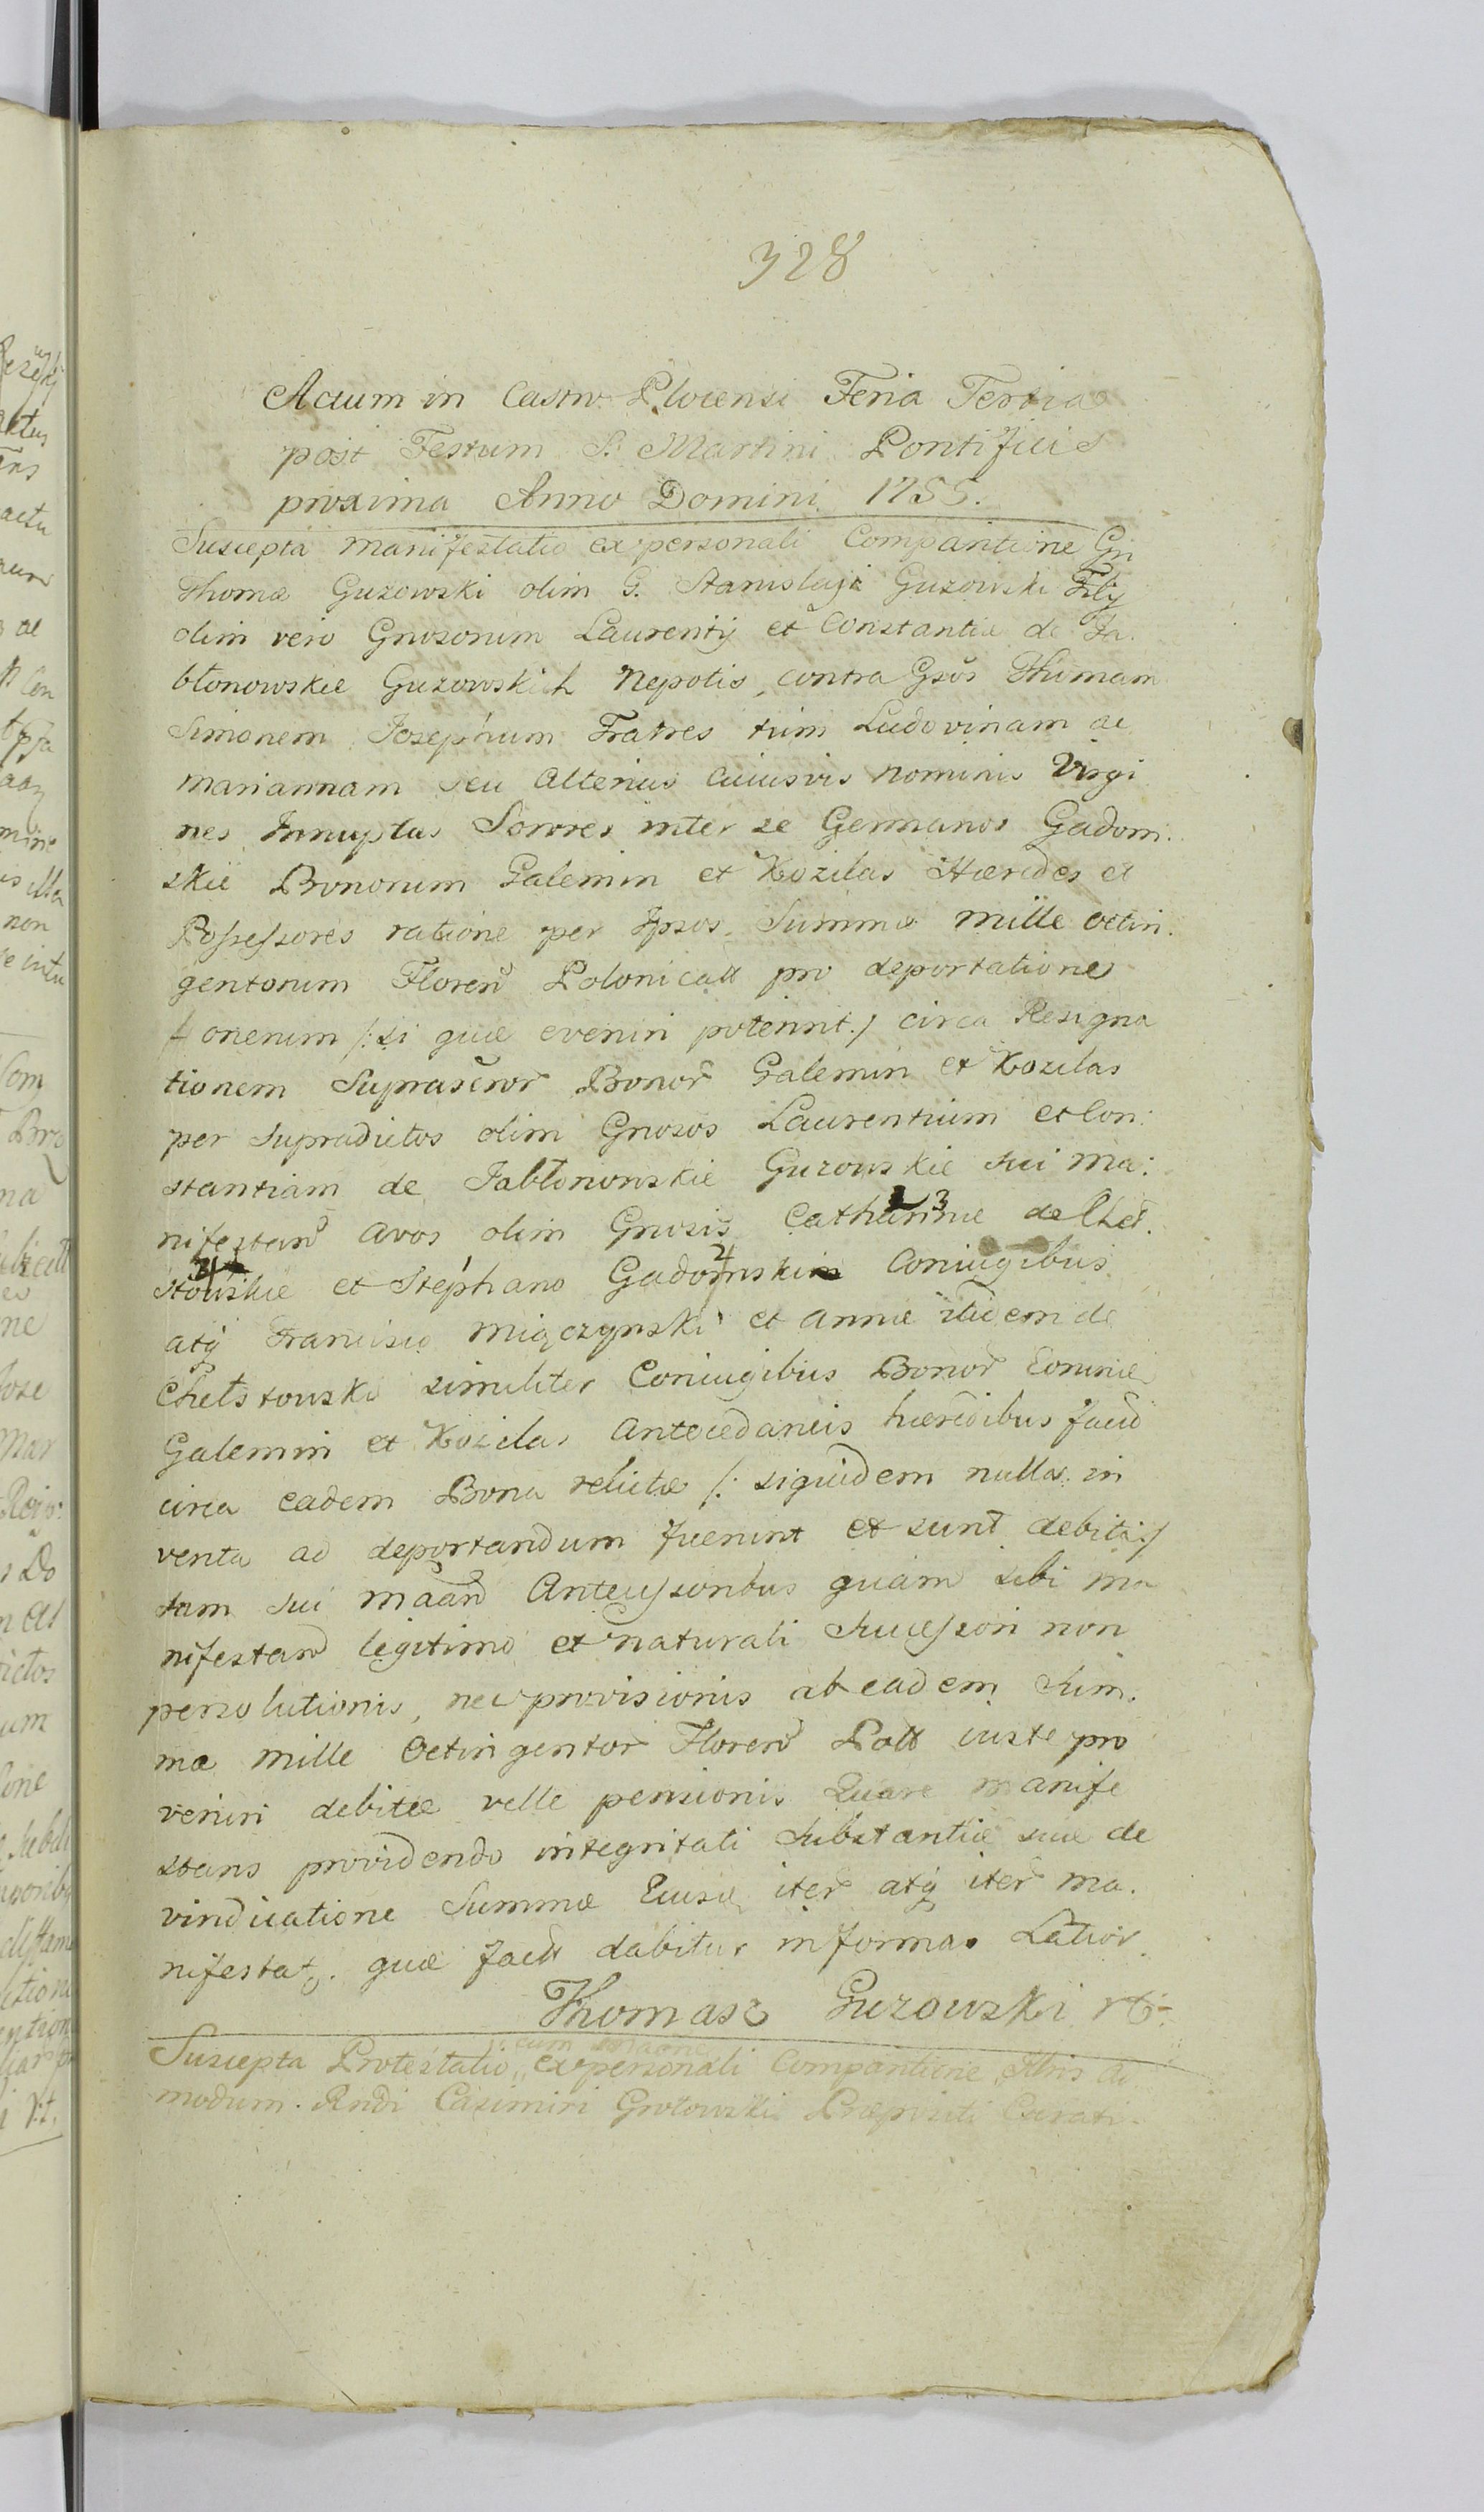 328
Actum in Castro Plocensi Feria Tertia
post Festum S. Martini Pontificis
proxima Anno Domini 1755.
Suscepta manifestatio ex personali Comparitione Gsi
Thomæ Guzowski olim G. Stanislai Guzowski Filij
olim vero Gnosorum Laurentij et Constantiæ de Ja:
błonowskie Guzowskich Nepotis, contra Gsos Thomam
Simonem Josephum Fratres tum Ludovinam ac
Mariannam seu alterius cuiusvis nominis Virgi
nes Innuptas Sorores inter se Germanos Gadom:
skie Bonorum Galemin et Kozilas Hæredes et
Possessores ratione per Ipsos Summæ mille octin:
gentorum Floren Polonicall pro deportatione
onerum /: si quæ eveniri poterint :/ circa Resigna
tionem Suprascror Bonor Galemin et Kozilas
per supradictos olim Gnosos Laurentium et Con:
stantiam de Jabłonowskie Guzowskie sui ma:
nifestan avos olim Gnosis Catharinæ de Cheł:
stowskie et Stephano Gadomski Coniugibus
atq Francisco Miączynski et Annæ itidem de
Chełstowskie similiter Coniugibus Bonor Eorum
Galemin et Kozilas Antecedaneis hæredibus fact
circa eadem Bona relictæ /: siquidem nulla in
venta ad deportandum fuerunt et sunt debita :/
tam sui maan Antecessoribus quam sibi ma
nifestan legitimo et naturali Successori non
persolutionis, nec provisionis ab eadem Sum:
ma mille Octingentor Floren Poll iuste pro
veniri debitæ velle pensionis Quare manife
stans providendo integritati Substantiæ suæ de
vindicatione Summæ Eiusd iter atq iter ma:
nifestat. quæ fact dabitur in forma Latior.
Thomasz Guzowski
Suscepta Protestatio cum ex personali Comparitione Illris Ad
modum Rndi Casimiri Grotowski Præpositi Curati